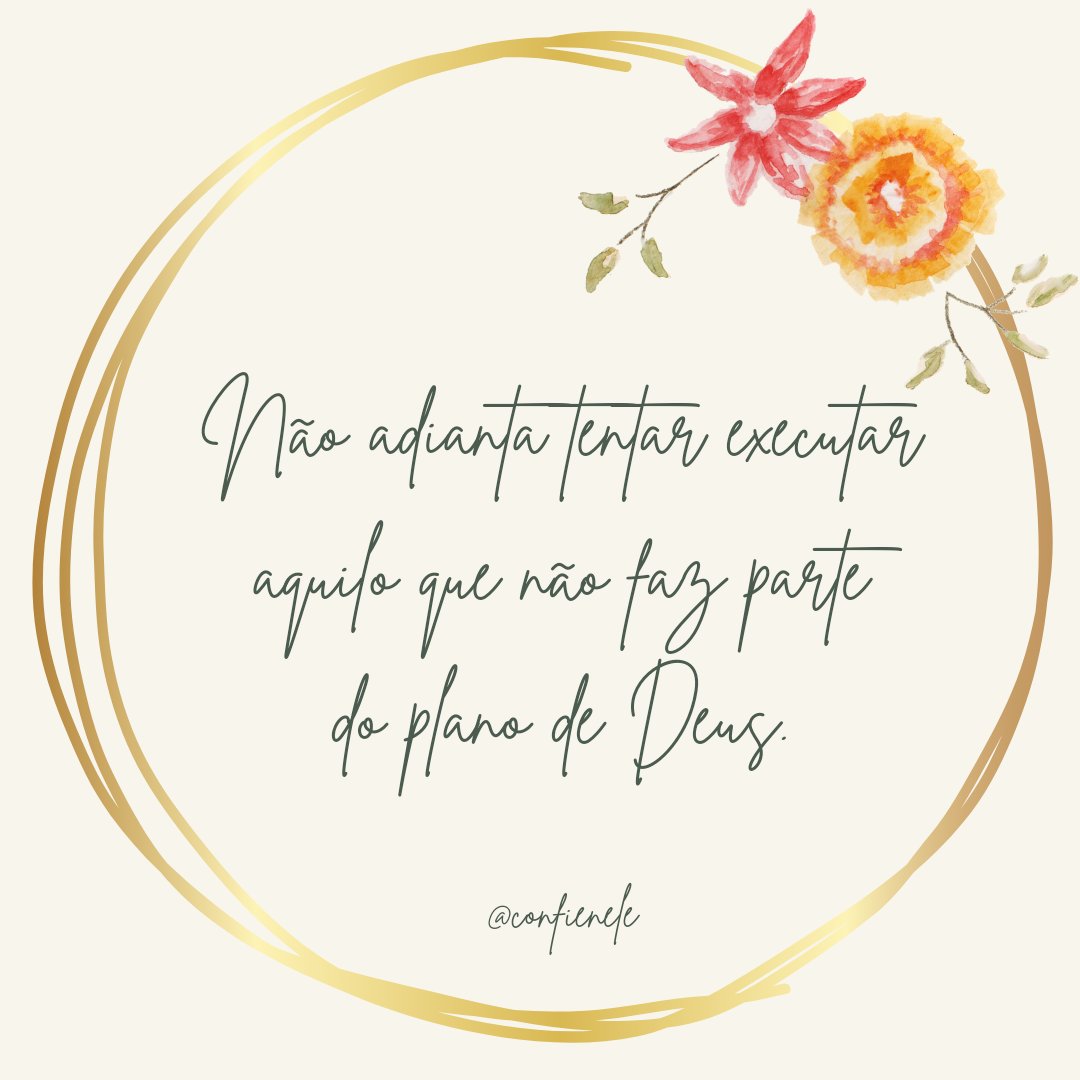 Não adianta tentar executar
aquilo que não faz parte
do plano de Deus.
@confienele